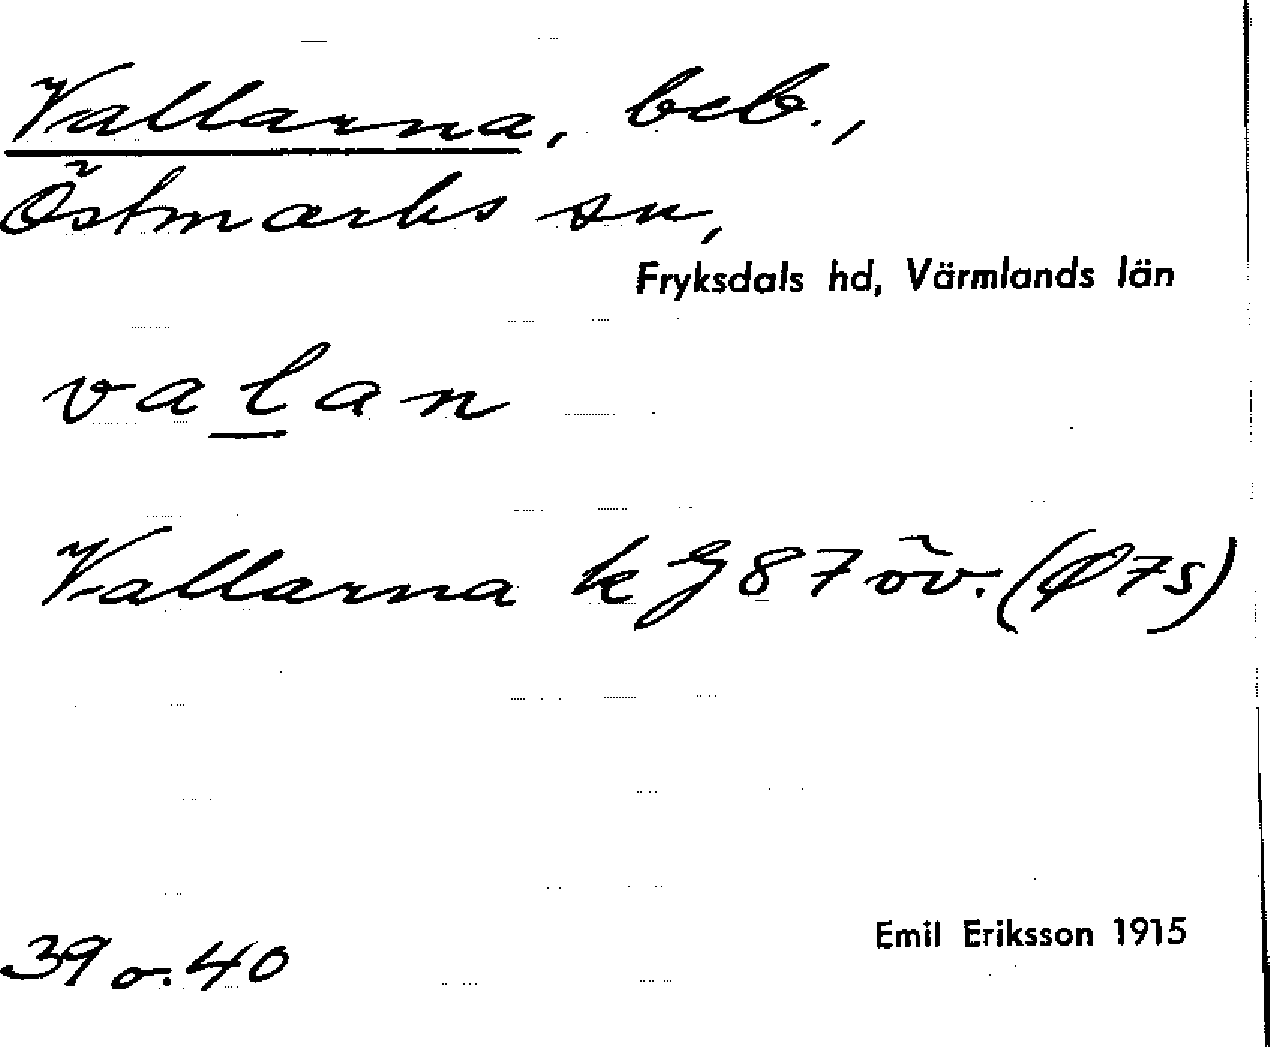 Vallarna, beb.,
Östmarks sn,
Fryksdals hd, Värmlands län
valan
Vallarna k G 87 öv. (Ø 7s)
39 o. 40
Emil Eriksson 1915